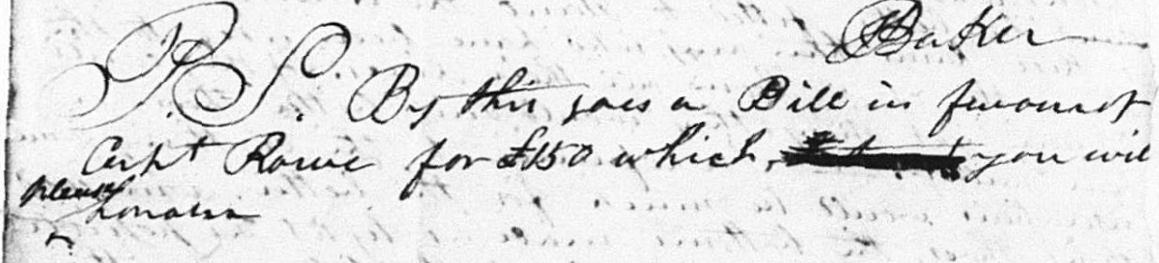 Baker
P.S. By this goes a Bill in favour of
Capt Rowe for £150 which you will
please honour